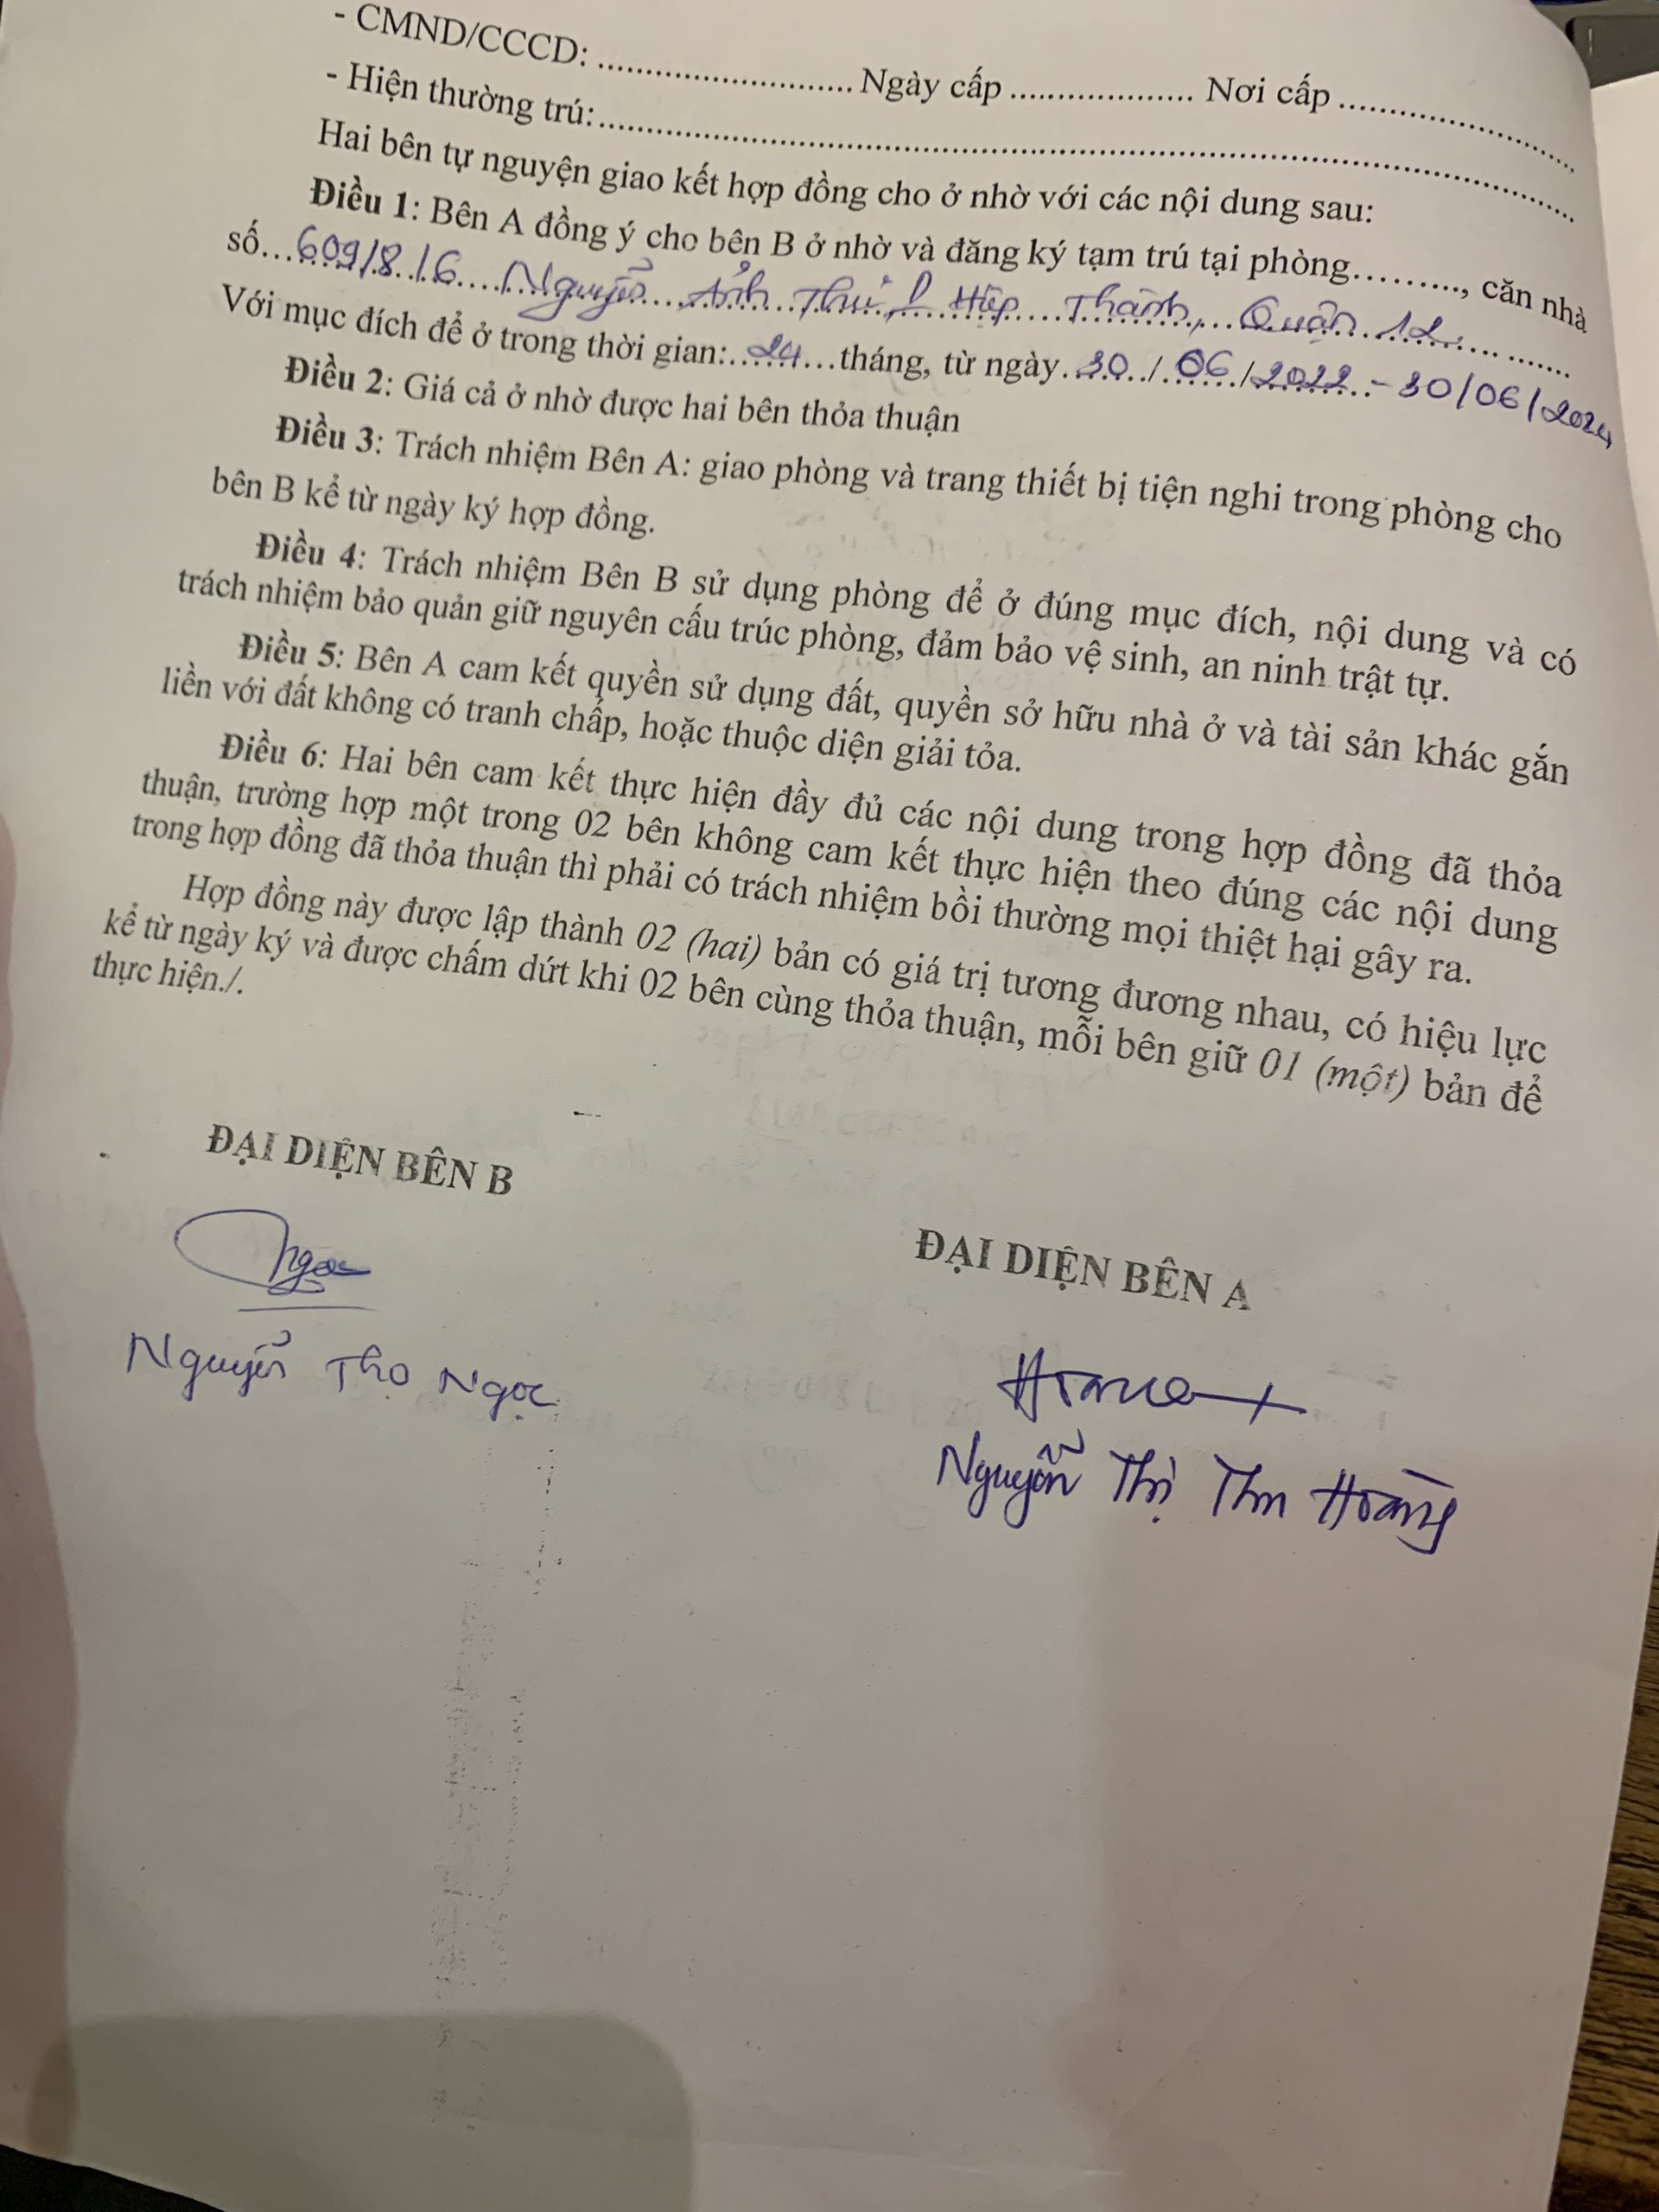 - CMND/CCCD: ........................... Ngày cấp .................... Nơi cấp .........................
- Hiện thường trú:.........................................................................................................
Hai bên tự nguyện giao kết hợp đồng cho ở nhờ với các nội dung sau:
Điều 1: Bên A đồng ý cho bên B ở nhờ và đăng ký tạm trú tại phòng........., căn nhà
số...609/8/6 Nguyễn Ảnh Thủ, P Hiệp Thành, Quận 12..........
Với mục đích để ở trong thời gian:...24...tháng, từ ngày 30/06/2022 - 30/06/2024
Điều 2: Giá cả ở nhờ được hai bên thỏa thuận
Điều 3: Trách nhiệm Bên A: giao phòng và trang thiết bị tiện nghi trong phòng cho
bên B kể từ ngày ký hợp đồng.
Điều 4: Trách nhiệm Bên B sử dụng phòng để ở đúng mục đích, nội dung và có
trách nhiệm bảo quản giữ nguyên cấu trúc phòng, đảm bảo vệ sinh, an ninh trật tự.
Điều 5: Bên A cam kết quyền sử dụng đất, quyền sở hữu nhà ở và tài sản khác gắn
liền với đất không có tranh chấp, hoặc thuộc diện giải tỏa.
Điều 6: Hai bên cam kết thực hiện đầy đủ các nội dung trong hợp đồng đã thỏa
thuận, trường hợp một trong 02 bên không cam kết thực hiện theo đúng các nội dung
trong hợp đồng đã thỏa thuận thì phải có trách nhiệm bồi thường mọi thiệt hại gây ra.
Hợp đồng này được lập thành 02 (hai) bản có giá trị tương đương nhau, có hiệu lực
kể từ ngày ký và được chấm dứt khi 02 bên cùng thỏa thuận, mỗi bên giữ 01 (một) bản để
thực hiện./.
ĐẠI DIỆN BÊN B
Ngọc
Nguyễn Thọ Ngọc
ĐẠI DIỆN BÊN A
Nguyễn Thị Thu Hoàng